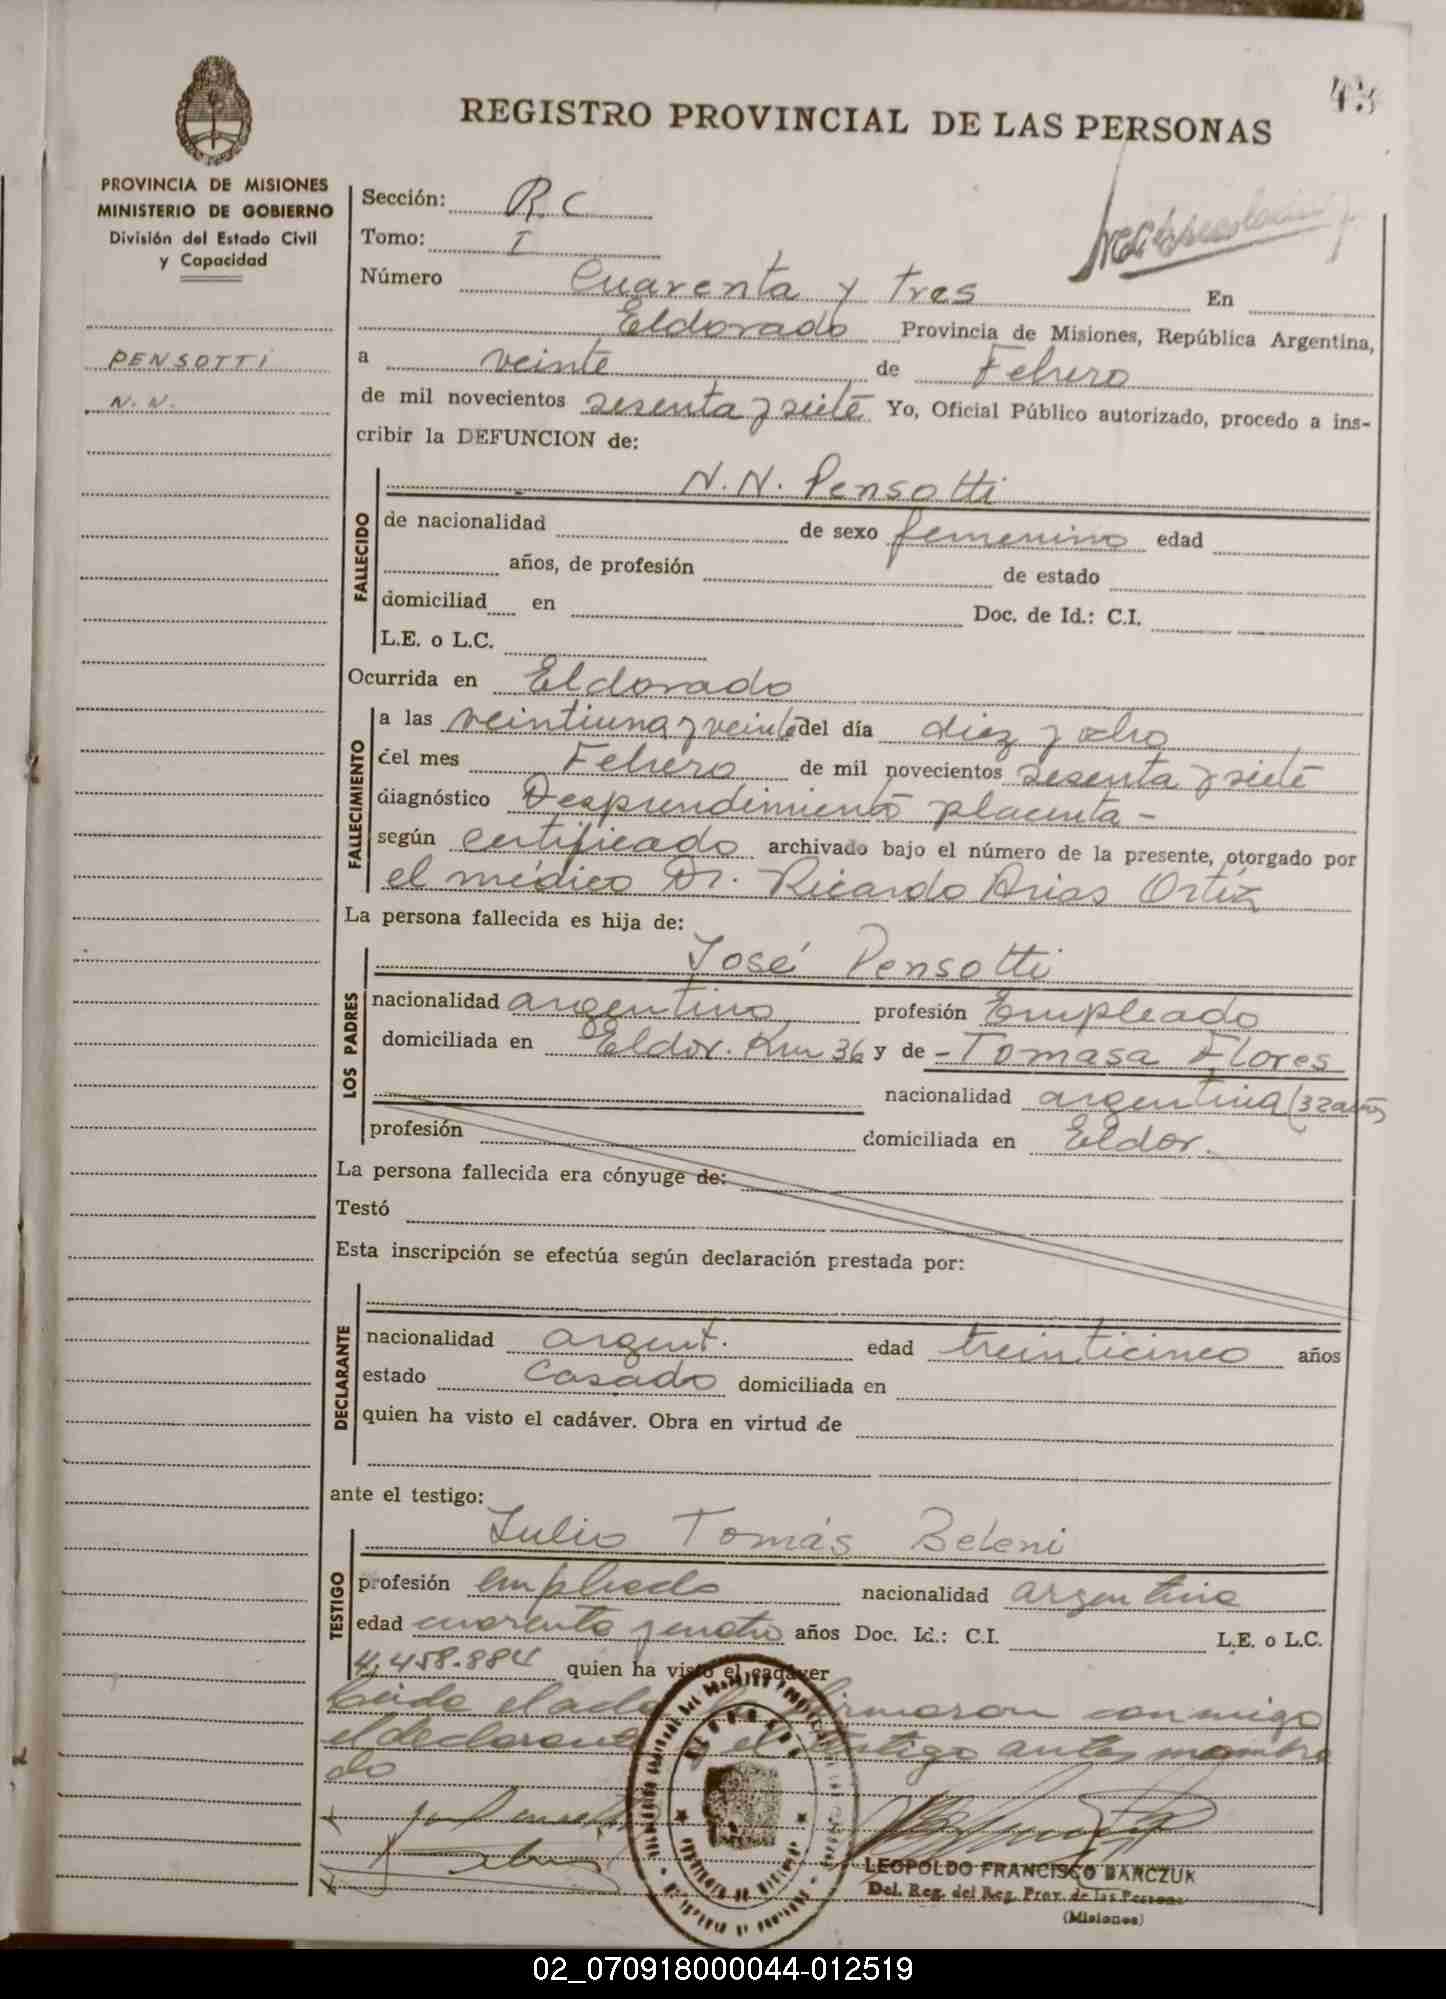 43
REGISTRO PROVINCIAL DE LAS PERSONAS
PROVINCIA DE MISIONES
MINISTERIO DE GOBIERNO
División del Estado Civil
y Capacidad
PENSOTTI
N. N.
Sección: R. C
Tomo: I
Número Cuarenta y tres En
Eldorado Provincia de Misiones, República Argentina,
a veinte de Febrero
de mil novecientos sesenta y siete Yo, Oficial Público autorizado, procedo a ins-
cribir la DEFUNCION de:
FALLECIDO
N. N. Pensotti
de nacionalidad de sexo femenino edad
años, de profesión de estado
domiciliad en Doc. de Id.: C.I.
L.E. o L.C.
Ocurrida en Eldorado
FALLECIMIENTO
a las veintiuna y veinte del día diez y ocho
del mes Febrero de mil novecientos sesenta y siete
diagnóstico Desprendimiento placenta -
según certificado archivado bajo el número de la presente, otorgado por
el médico Dr. Ricardo Arias Ortiz
La persona fallecida es hija de:
LOS PADRES
José Pensotti
nacionalidad argentino profesión Empleado
domiciliada en Eldor. Km 36 y de - Tomasa Flores
nacionalidad argentina (32 años)
profesión domiciliada en Eldor.
La persona fallecida era cónyuge de:
Testó
Esta inscripción se efectúa según declaración prestada por:
DECLARANTE
nacionalidad argent. edad treinticinco años
estado Casado domiciliada en
quien ha visto el cadáver. Obra en virtud de
ante el testigo:
TESTIGO
Julio Tomás Beleni
profesión empleado nacionalidad argentina
edad cuarenta y cuatro años Doc. Id.: C.I. L.E. o L.C.
4.458.884 quien ha visto el cadáver
Leida el acta la firmaron conmigo
el declarante y el testigo antes mombra
do
LEOPOLDO FRANCISCO BARCZUK
Del. Reg. del Reg. Prov. de las Personas
(Misiones)
02_070918000044-012519